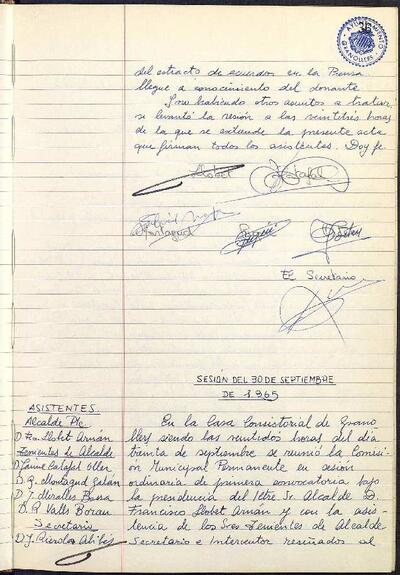 AYUNTAMIENTO
GRANOLLERS
del extracto de acuerdos en la Prensa
llegue a conocimiento del donante
Y no habiendo otros asuntos a tratar,
se levantó la sesión a las veintitrés horas
de la que se extiende la presente acta
que firman todos los asistentes. Doy fe
Llobet
El Secretario
SESIÓN DEL 30 DE SEPTIEMBRE
DE 1.965
ASISTENTES
Alcalde Pte.
D. Fco. Llobet Arnán
Tenientes de Alcalde
D. Jaime
D. R. Montagud
D. J. Miralles
D. R. Valls Borau
Secretario
D. J.
En la Casa Consistorial de Grano
llers siendo las veintidos horas del día
treinta de septiembre se reunió la Comisi
ón Municipal Permanente en sesión
ordinaria de primera convocatoria bajo
la presidencia del Iltre Sr. Alcalde D.
Francisco Llobet Arnán y con la asis-
tencia de los Sres Tenientes de Alcalde
Secretario e Interventor reseñados al